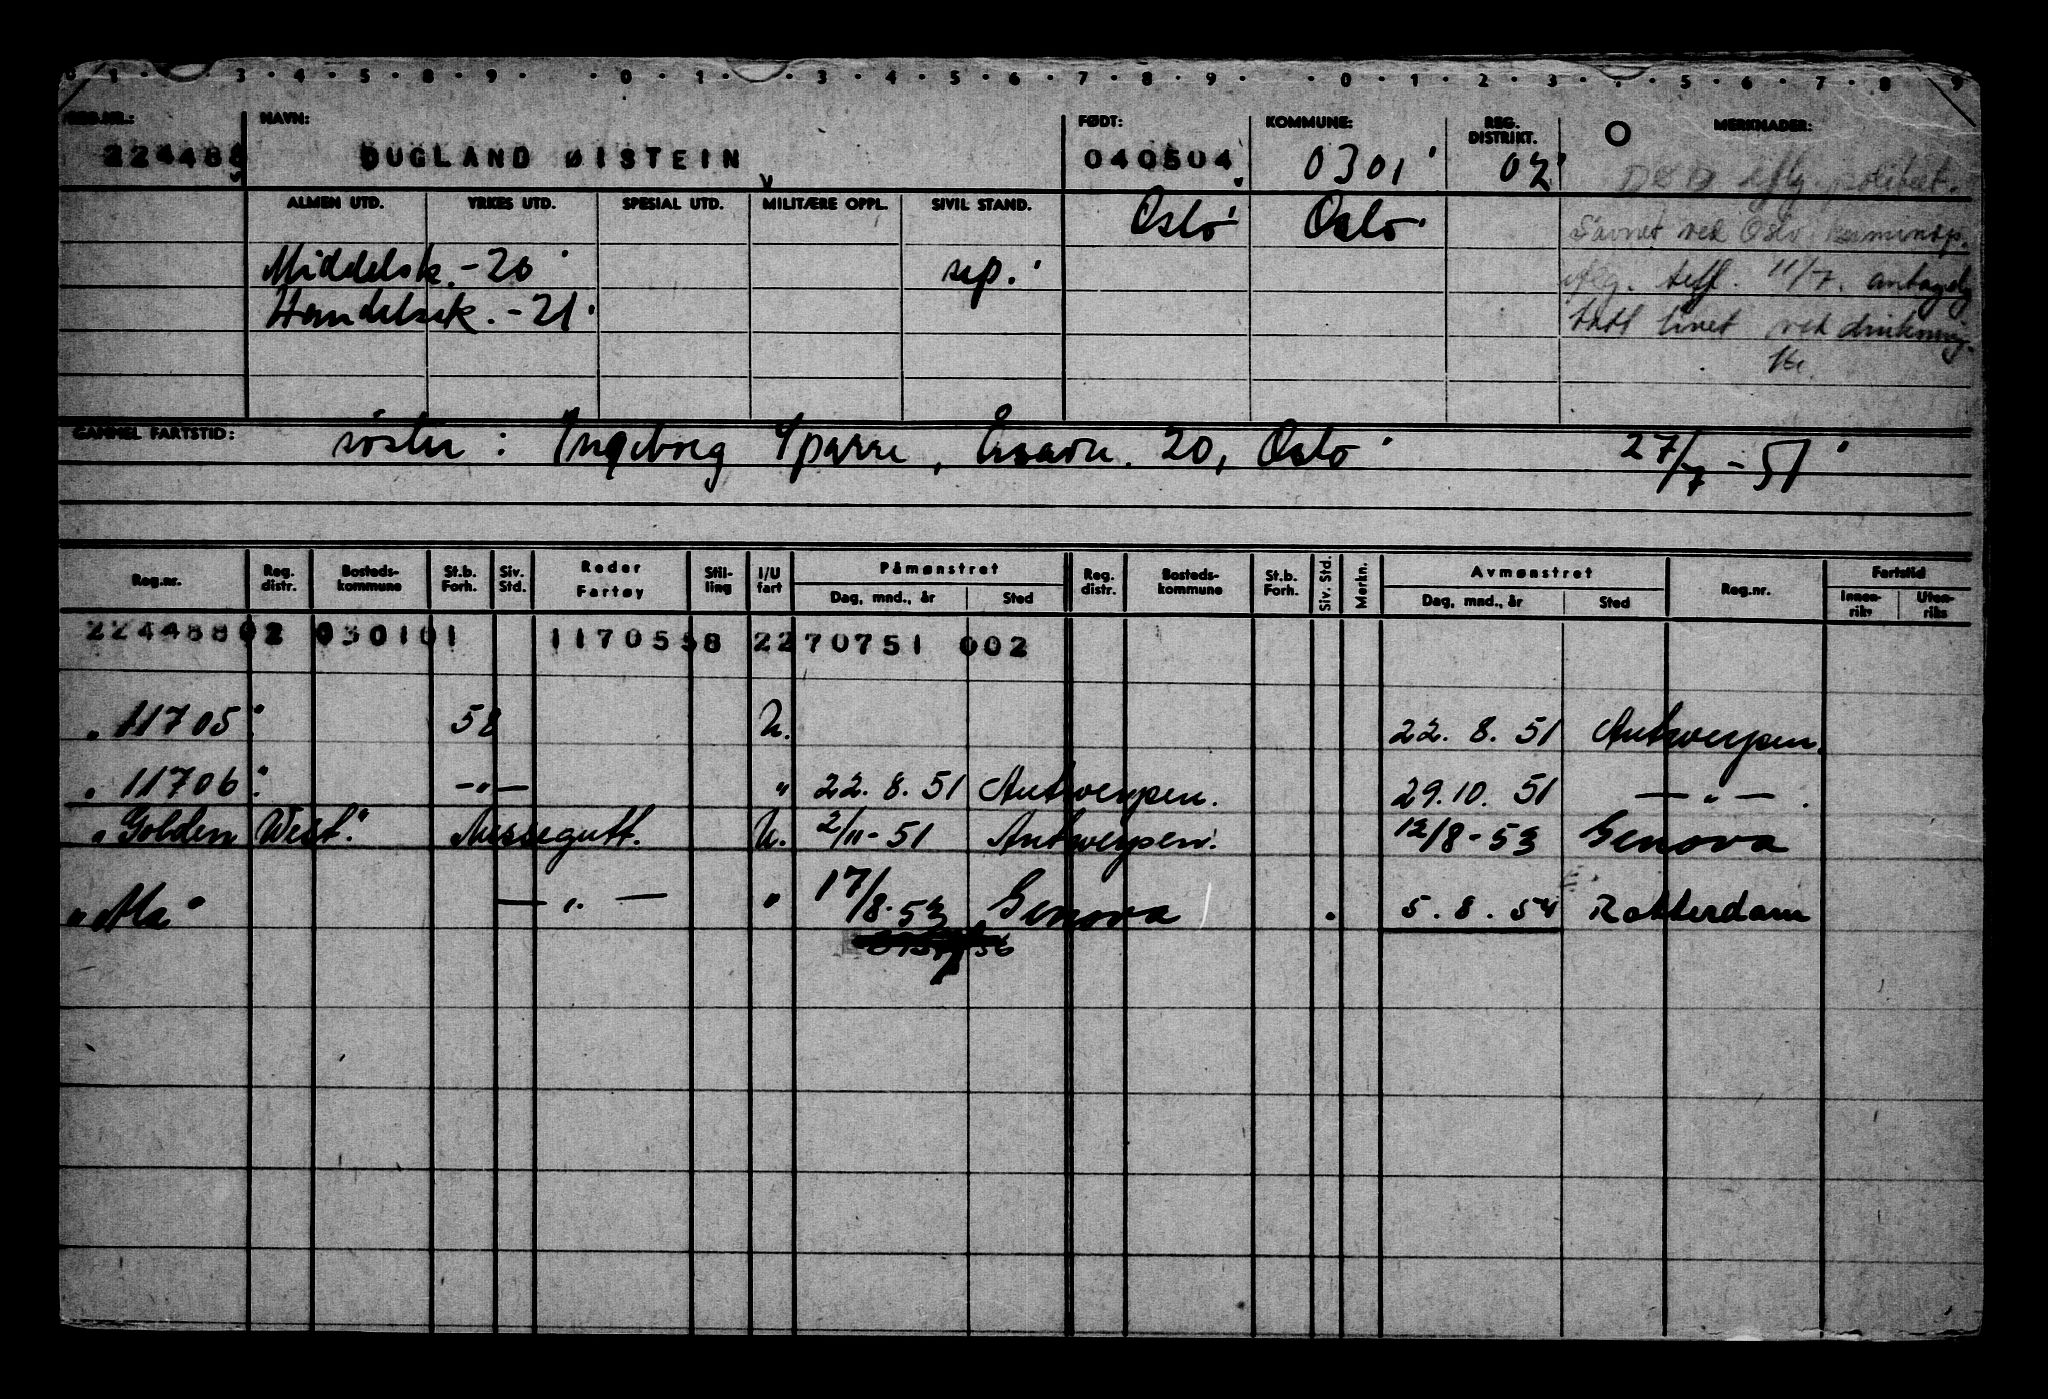 0 1 · 3 · 4 · 5 · 8 · 9 · · 0 · 1 · · 3 · 4 · 5 · 6 · 7 · 8 · 9 · · 0 · 1 · 2 · 3 · · 5 · 6 · 7 · 8 · 9
REG.NR.: NAVN: FØDT: KOMMUNE: REG. DISTRIKT. MERKNADER:
224488 DUGLAND ØISTEIN 040504 0301 02 DØD iflg. politiet.
ALMEN UTD. YRKES UTD. SPESIAL UTD. MILITÆRE OPPL. SIVIL STAND. Oslo Oslo Savnet ved Oslo
Middelsk. - 20 sep. iflg. telf. 11/7. antagelig
Handelssk. - 21 tatt livet ved drukning.
GAMMEL FARTSTID: søster: Ingeborg Sparre, Åsavn. 20, Oslo 27/7-51
Reg.nr. Reg. distr. Bosteds- kommune St.b. Forh. Siv. Std. Reder Fartøy Stil- ling I/U fart Påmønstret Dag, mnd., år Sted Reg. distr. Bosteds- kommune St.b. Forh. Siv. Std. Merkn. Avmønstret Dag, mnd., år Sted Reg.nr. Fartstid Innen- riks Uten- riks
22448802 030101 1170558 2270751 002
11705 58 U. 22. 8. 51 Antwerpen.
11706 — " — " 22. 8. 51 Antwerpen. 29. 10. 51 — " — .
"Golden West." Messegutt. U. 2/11-51 Antwerpen. 12/8-53 Genova
— " — " 17/8.53 Genova 5. 8. 54 Rotterdam